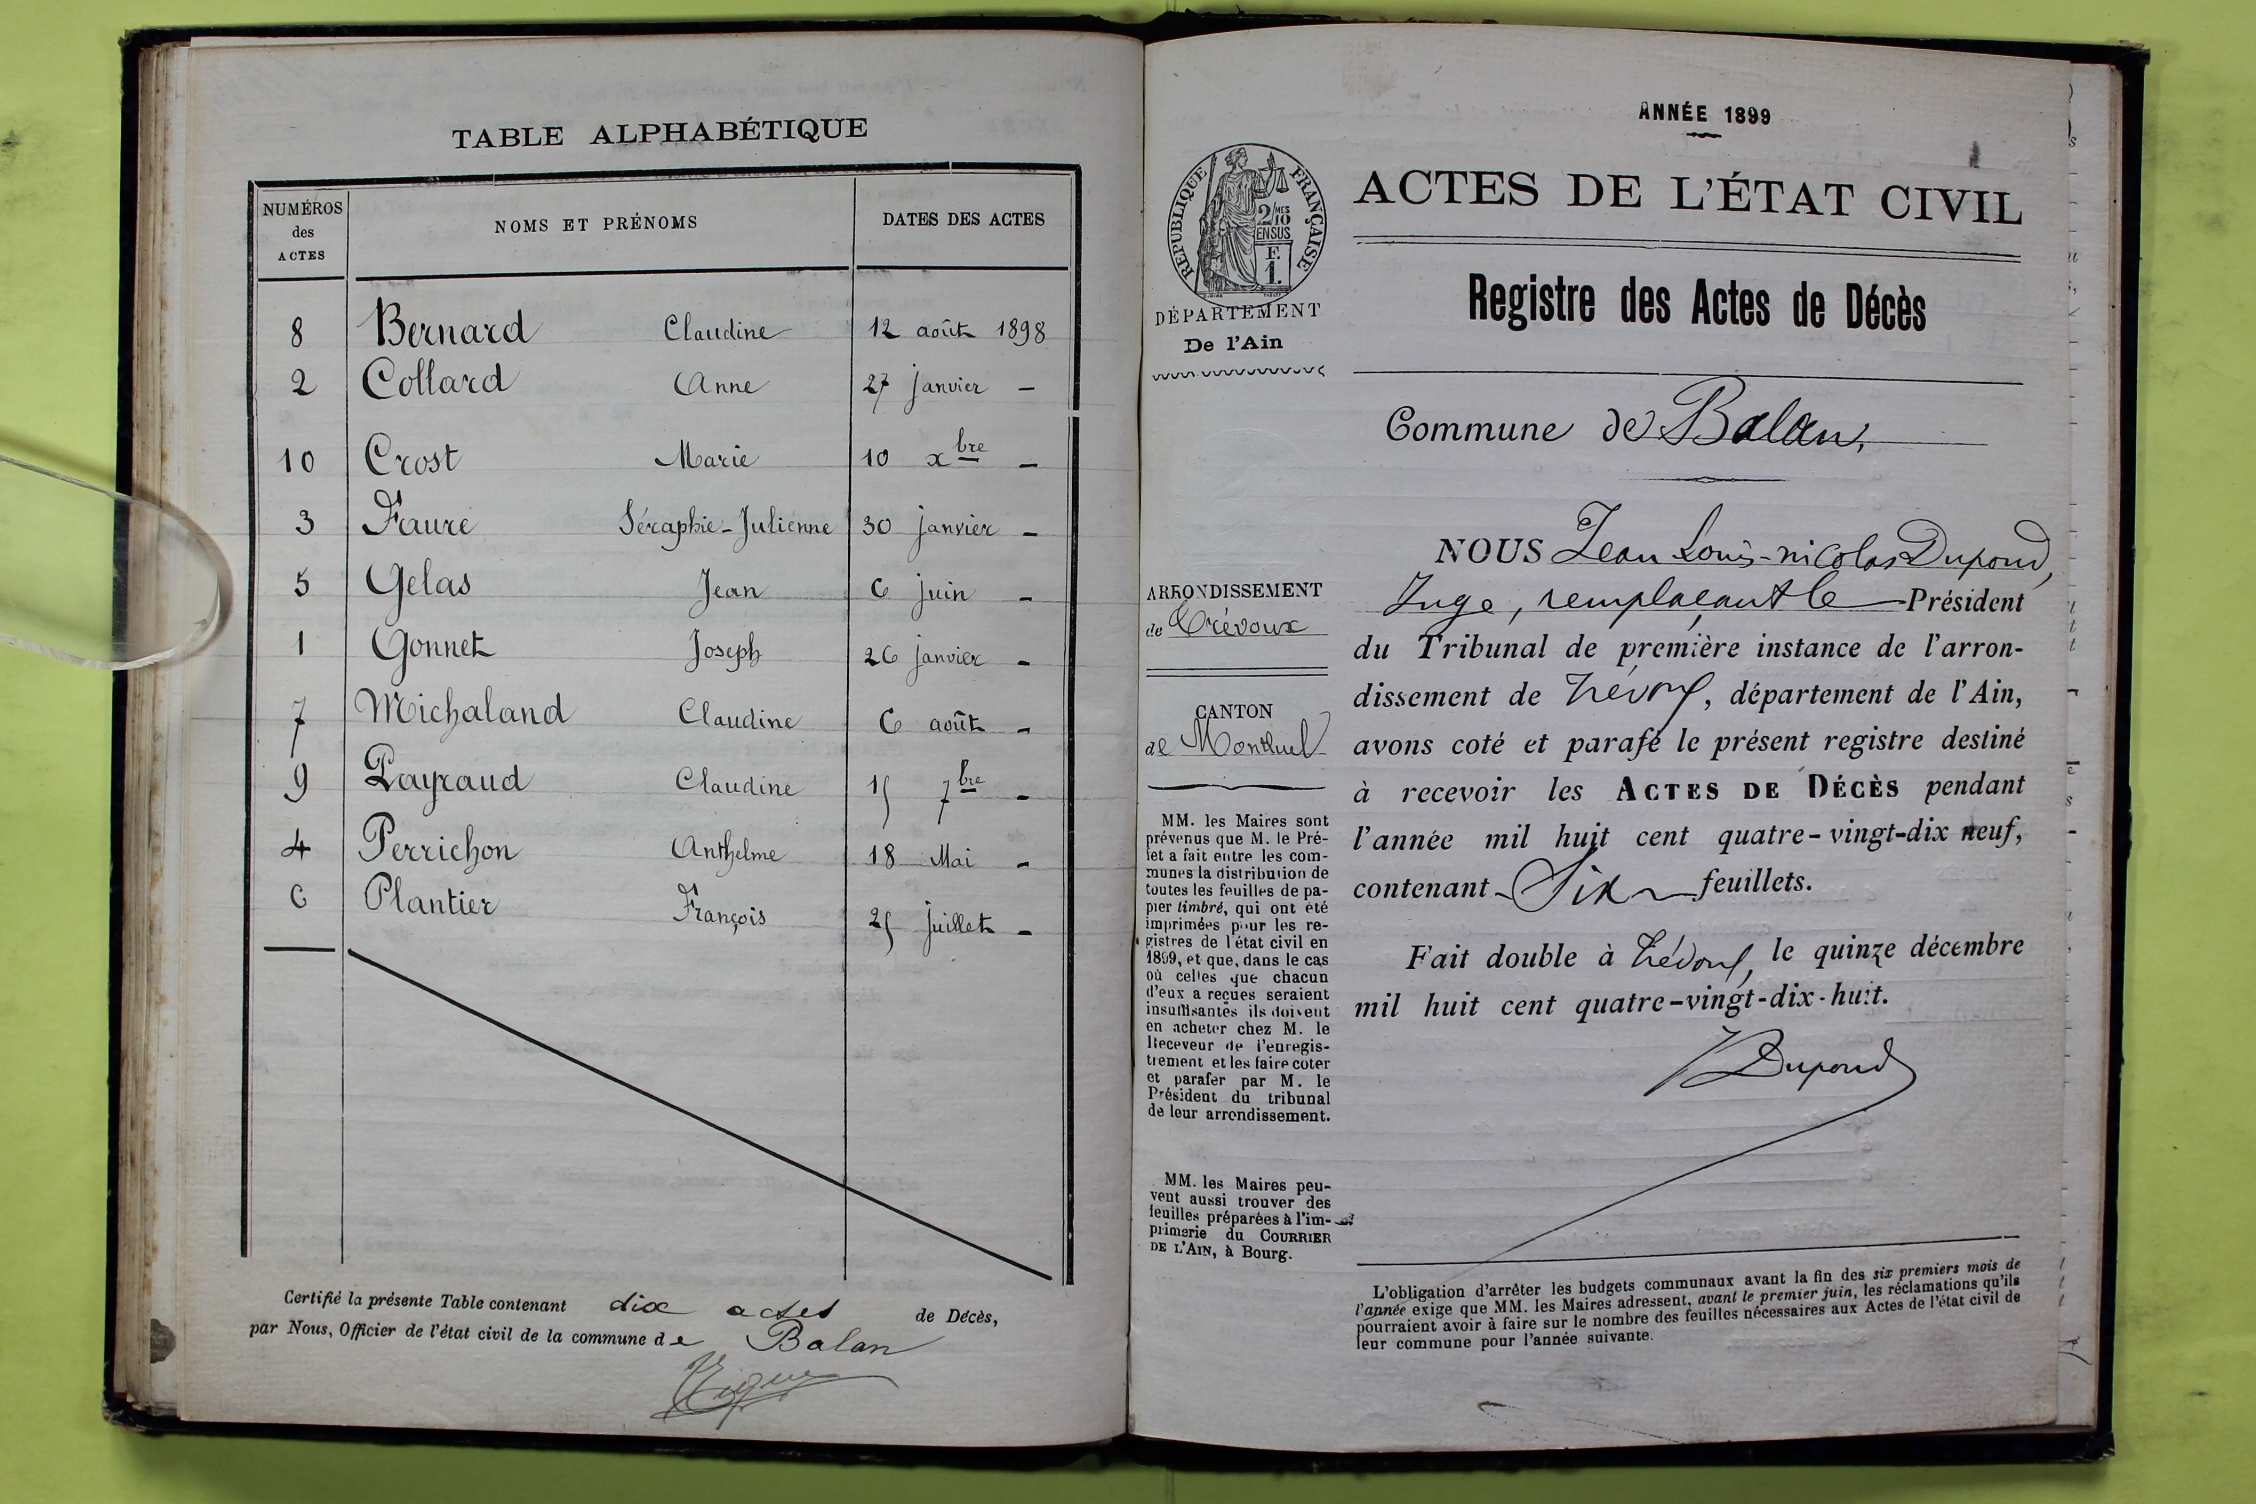 TABLE ALPHABÉTIQUE
NUMÉROS des ACTES NOMS ET PRÉNOMS DATES DES ACTES
8 Bernard Claudine 12 août 1898
2 Collard Anne 27 janvier -
10 Crost Marie 10 xbre -
3 Faure Séraphie-Julienne 30 janvier -
5 Gelas Jean 6 juin -
1 Gonnet Joseph 26 janvier -
7 Michaland Claudine 6 août -
9 Payraud Claudine 15 7bre -
4 Perrichon Anthelme 18 Mai -
6 Plantier François 25 juillet -
Certifié la présente Table contenant dix actes de Décès,
par Nous, Officier de l'état civil de la commune de Balan
ANNÉE 1899
1
RÉPUBLIQUE FRANÇAISE
2/10 MES
EN SUS
F.
1.
DÉPARTEMENT
De l'Ain
ARRONDISSEMENT
de Trévoux
CANTON
de Montluel
MM. les Maires sont
prévenus que M. le Pré-
fet a fait entre les com-
munes la distribution de
toutes les feuilles de pa-
pier timbré, qui ont été
imprimées pour les re-
gistres de l'état civil en
1899, et que, dans le cas
où celles que chacun
d'eux a reçues seraient
insuffisantes ils doivent
en acheter chez M. le
Receveur de l'enregis-
trement et les faire coter
et parafer par M. le
Président du tribunal
de leur arrondissement.
MM. les Maires peu-
vent aussi trouver des
feuilles préparées à l'im-
primerie du COURRIER
DE L'AIN, à Bourg.
ACTES DE L'ÉTAT CIVIL
Registre des Actes de Décès
Commune de Balan,
NOUS Jean Louis-nicolas Dupond,
Juge, remplaçant le Président
du Tribunal de première instance de l'arron-
dissement de Trévoux, département de l'Ain,
avons coté et parafé le présent registre destiné
à recevoir les ACTES DE DÉCÈS pendant
l'année mil huit cent quatre-vingt-dix neuf,
contenant Six feuillets.
Fait double à Trévoux, le quinze décembre
mil huit cent quatre-vingt-dix-huit.
Dupond
L'obligation d'arrêter les budgets communaux avant la fin des six premiers mois de
l'année exige que MM. les Maires adressent, avant le premier juin, les réclamations qu'ils
pourraient avoir à faire sur le nombre des feuilles nécessaires aux Actes de l'état civil de
leur commune pour l'année suivante.